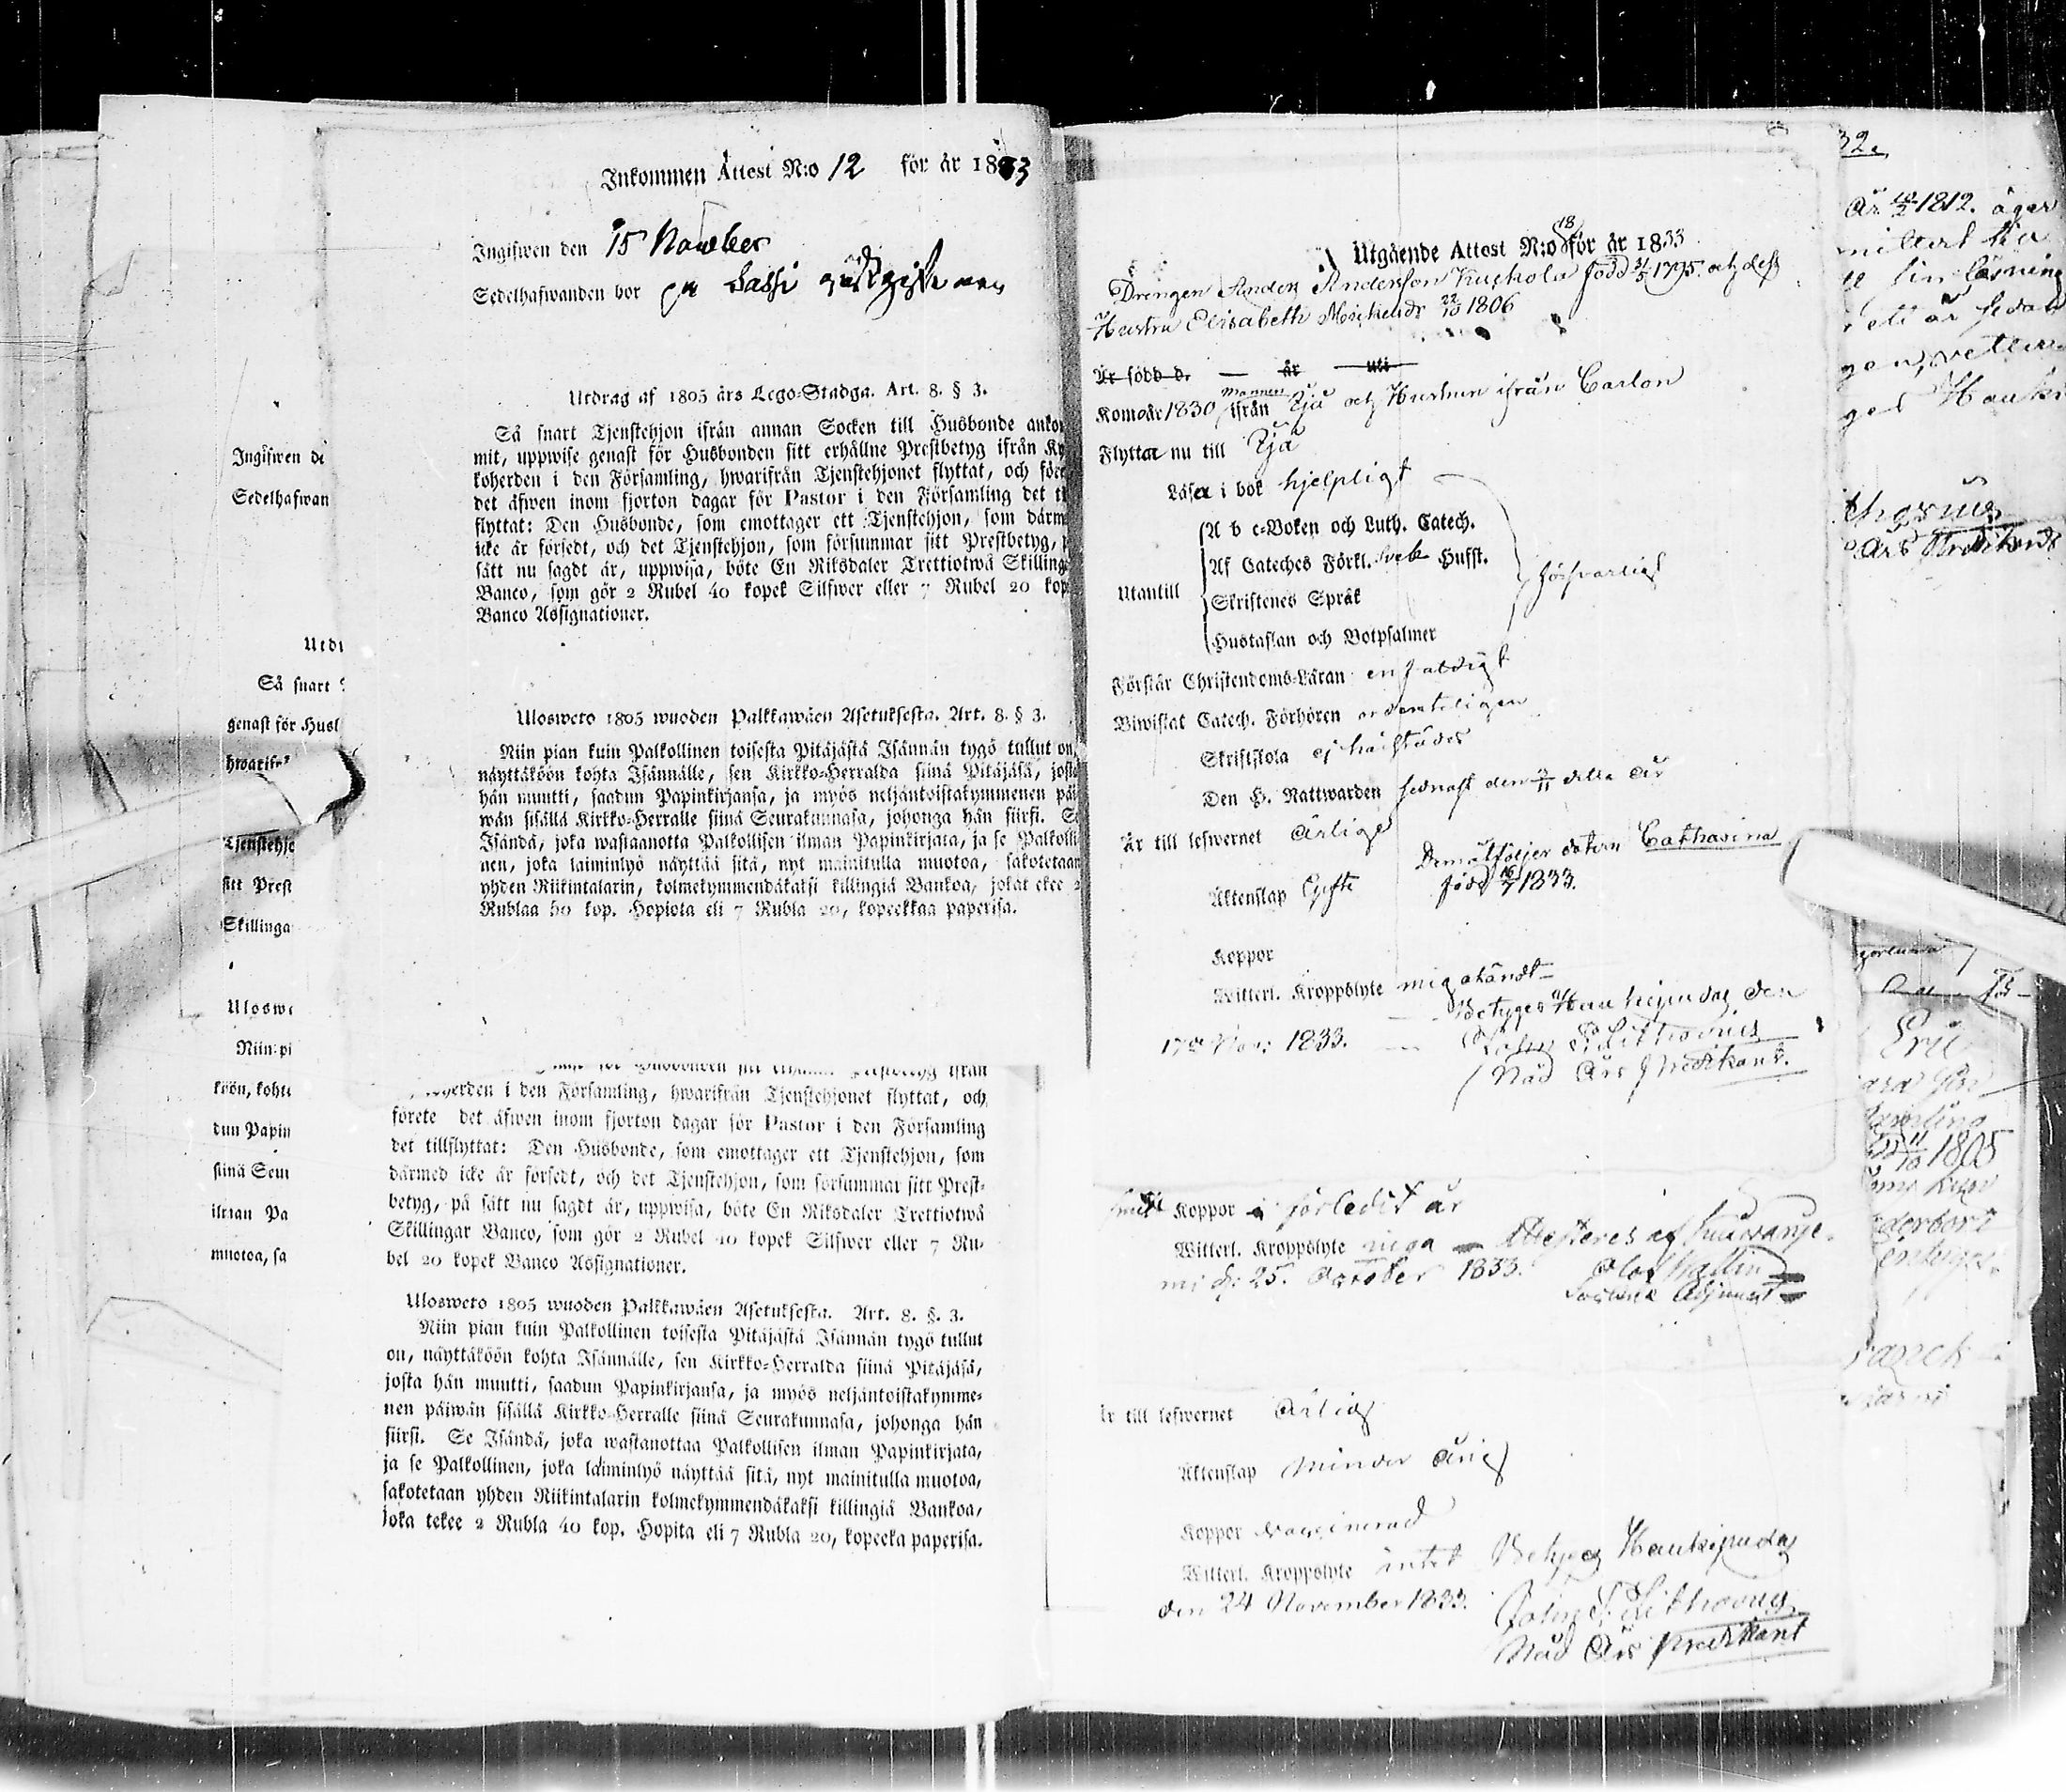 Inkommen Attest N:o 12 för år 1833
Ingifwen den 15 November
Sedelhafwanden bor på Lassi
Utdrag af 1805 års Lego-Stadga. Art. 8. § 3.
Så snart Tjenstehjon ifrån annan Socken till Husbonde ankom
mit, uppwise genast för Husbonden sitt erhållne Prestbetyg ifrån Ky
koherden i den Församling, hwarifrån Tjenstehjonet flyttat, och före
det äfwen inom fjorton dagar för Pastor i den Församling det ti
flyttat: Den Husbonde, som emottager ett Tjenstehjon, som därm
icke är försedt, och det Tjenstehjon, som försummar sitt Prestbetyg, p
sätt nu sagdt är, uppwisa, böte En Riksdaler Trettiotwå Skilling
Banco, som gör 2 Rubel 40 kopek Silfwer eller 7 Rubel 20 kop
Banco Assignationer.
Ulosweto 1805 wuoden Palkkawäen Asetuksesta. Art. 8. § 3.
Niin pian kuin Palkollinen toisesta Pitäjästä Isännän tygö tullut on,
näyttäköön kohta Isännälle, sen Kirkko-Herralda siinä Pitäjäsä, josta
hän muutti, saadun Papinkirjansa, ja myös neljäntoistakymmenen päi
wän sisällä Kirkko-Herralle siinä Seurakunnasa, johonga hän siirsi. Se
Isändä, joka wastaanotta Palkollisen ilman Papinkirjata, ja se Palkolli
nen, joka laiminlyö näyttää sitä, nyt mainitulla muotoa, sakotetaan
yhden Riikintalarin, kolmekymmendäkaksi killingiä Bankoa, jokat ekee 2
Rublaa 80 kop. Hopiota eli 7 Rubla 20, kopeekkaa paperisa.
herden i den Församling, hwarifrån Tjenstehjonet flyttat, och
förete det äfwen inom fjorton dagar för Pastor i den Församling
det tillflyttat: Den Husbonde, som emottager ett Tjenstehjon, som
därmed icke är försedt, och det Tjenstehjon, som försummar sitt Prest-
betyg, på sätt nu sagdt är, uppwisa, böte En Riksdaler Trettiotwå
Skillingar Banco, som gör 2 Rubel 40 kopek Silfwer eller 7 Ru-
bel 20 kopek Banco Assignationer.
Ulosweto 1805 wuoden Palkkawäen Asetuksesta. Art. 8. §. 3.
Niin pian kuin Palkollinen toisesta Pitäjästä Isännän tygö tullut
on, näyttäköön kohta Isännälle, sen Kirkko-Herralda siinä Pitäjäsä,
josta hän muutti, saadun Papinkirjansa, ja myös neljäntoistakymme-
nen päiwän sisällä Kirkko-Herralle siinä Seurakunnasa, johonga hän
siirsi. Se Isändä, joka wastanottaa Palkollisen ilman Papinkirjata,
ja se Palkollinen, joka laiminlyö näyttää sitä, nyt mainitulla muotoa,
sakotetaan yhden Riikintalarin kolmekymmendäkaksi killingiä Bankoa,
joka tekee 2 Rubla 40 kop. Hopita eli 7 Rubla 20, kopeeka paperisa.
Ingifwen de
Sedelhafwan
Utdr
Så snart
genast för Husb
Tjenstehjo
sitt Prest
Skillinga
Uloswe
Niin pi
köön, kohta
dun Papin
siinä Seur
ilman Pa
muotoa, sa
Utgående Attest N:o 18 för år 1833
Drengen Anders Andersson Kuchola född 31/5 1795. och dess
Hustru Elisabeth Michelsdr 22/10 1806
Är född d. — år — uti
Kom år 1830 mannen ifrån Ijå och Hustrun ifrån Carlon
Flyttar nu till Ijå
Läser i bok hjelpligt
Utantill
A b c-Boken och Luth. Catech.
Af Cateches Förkl. Sveb. Husst.
Skriftenes Språk
Hustaflan och Botpsalmer
försvarligt
Förstår Christendoms-Läran enfaldigt
Biwistat Catech. Förhören ordenteligen
Skriftskola ej härstädes
Den H. Nattwarden sednast den 3/11 detta år
är till lefwernet ärliga
Äktenskap Gifte
Dem åtföljer dotern Catharina
född 16/7 1833.
Koppor
Witterl. Kroppslyte mig okändt —
Betygas af Haukipudas den
17de Nov: 1833. Johan F. Lithovius
Nåd Års Predikant.
Koppor i förledit år
Witterl. Kroppslyte inga — Attesteras af
mi d: 25. October 1833. Olof Wallin
Adjunct
är till lefwernet ärlig
Äktenskap Minder årig
Koppor Vaccinerad
Witterl. Kroppslyte intet Betygas Haukipudas
den 24 November 1833. Johan F. Lithovius
Nåd Års Predikant
32.
År 1812. äger
sin läsning
ett år sedan
1805